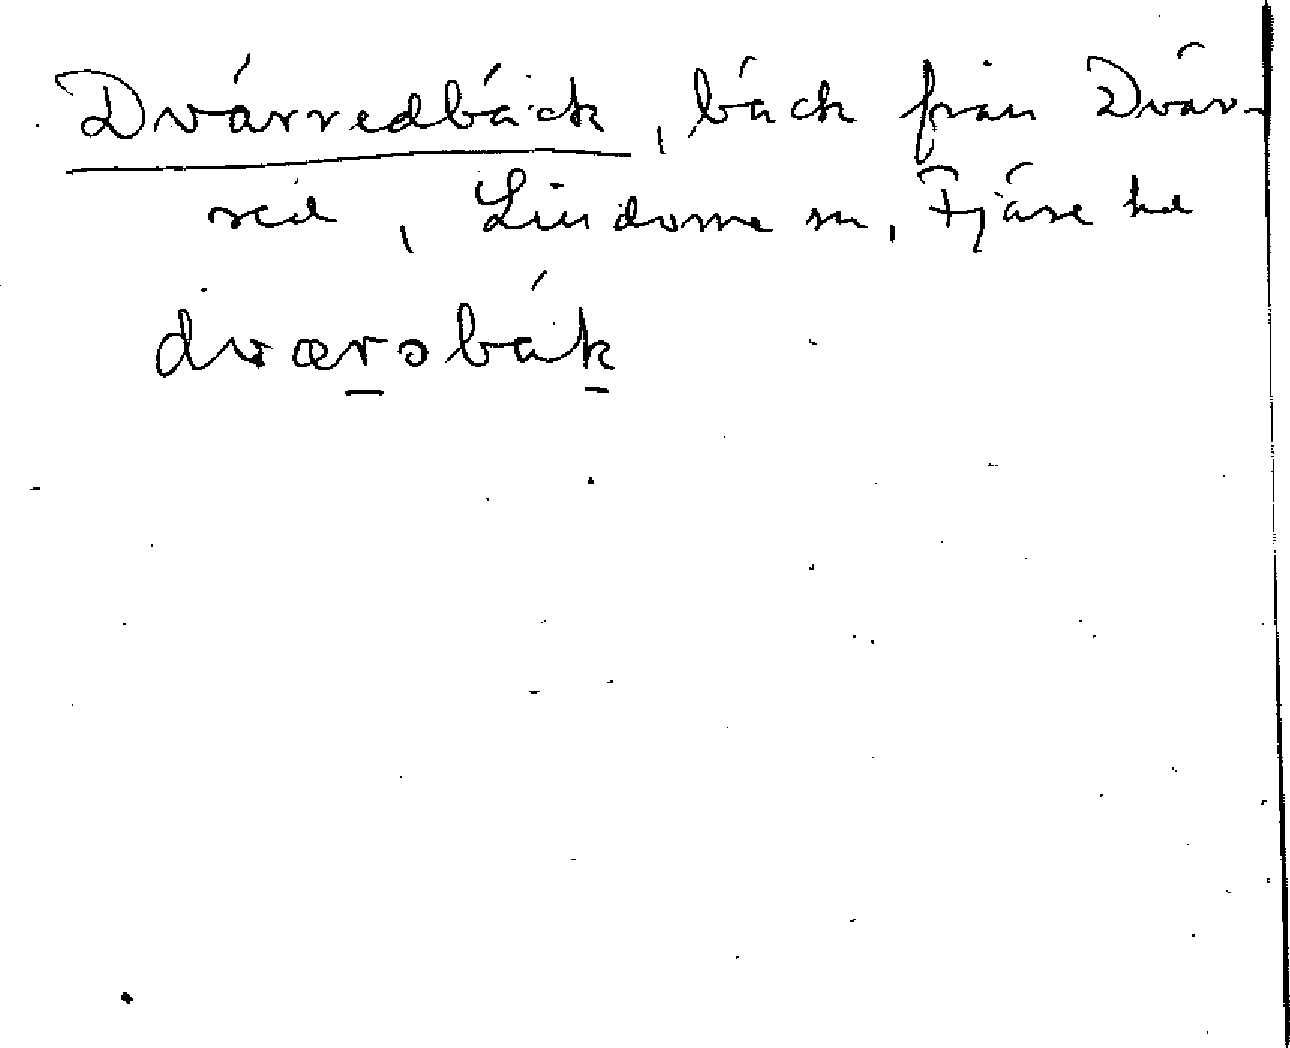 Dvärredbäck, bäck från Dvär-
red, Lindome sn, Fjäre hd
dværəbäk